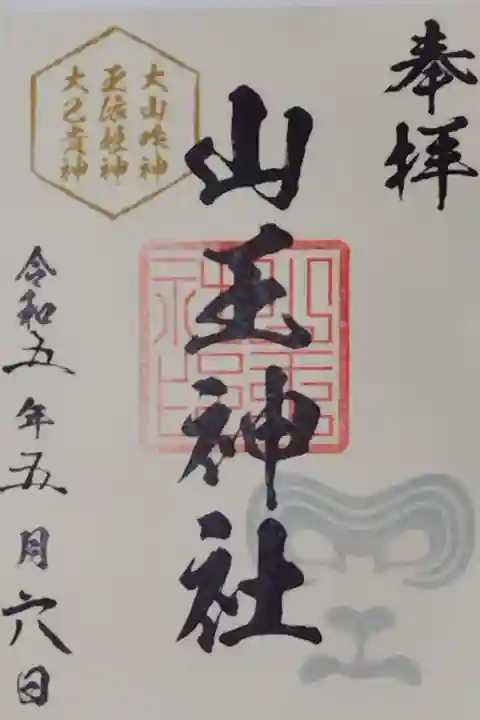 奉拝
山王神社
大山咋神
玉依姫神
大己貴神
令和五年五月六日